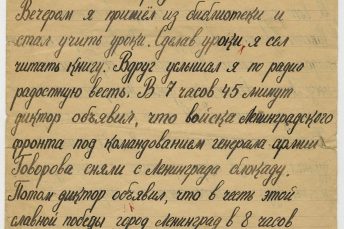 Вечером я пришёл из библиотеки и
стал учить уроки. Сделав уроки, я сел
читать книгу. Вдруг услышал я по радио
радостую весть. В 7 часов 45 минут
диктор объявил, что войска Ленинградского
фронта под командованием генерала армии
Говорова сняли с Ленинграда блокаду.
Потом диктор объявил, что в честь этой
славной победы город Ленинград в 8 часов